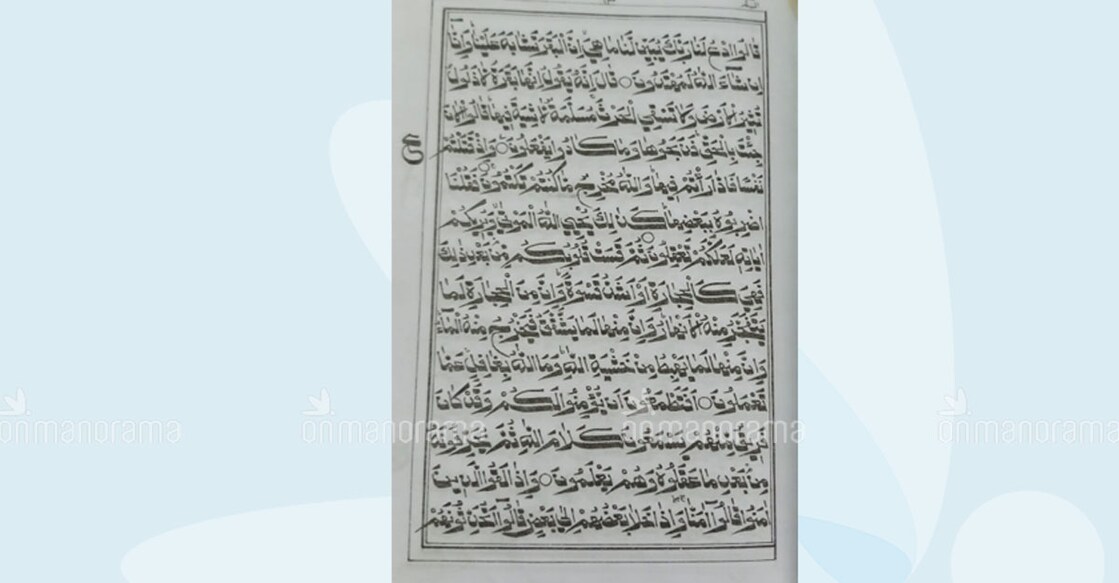 قَالُوا ادْعُ لَنَا رَبَّكَ يُبَيِّنْ لَنَا مَا هِيَ إِنَّ الْبَقَرَ تَشَابَهَ عَلَيْنَا وَإِنَّا
إِنْ شَاءَ اللَّهُ لَمُهْتَدُونَ ○ قَالَ إِنَّهُ يَقُولُ إِنَّهَا بَقَرَةٌ لَا ذَلُولٌ
تُثِيرُ الْأَرْضَ وَلَا تَسْقِي الْحَرْثَ مُسَلَّمَةٌ لَا شِيَةَ فِيهَا قَالُوا الْآنَ
جِئْتَ بِالْحَقِّ فَذَبَحُوهَا وَمَا كَادُوا يَفْعَلُونَ ○ وَإِذْ قَتَلْتُمْ
ع
نَفْسًا فَادَّارَأْتُمْ فِيهَا وَاللَّهُ مُخْرِجٌ مَا كُنْتُمْ تَكْتُمُونَ ○ فَقُلْنَا
اضْرِبُوهُ بِبَعْضِهَا كَذَلِكَ يُحْيِي اللَّهُ الْمَوْتَى وَيُرِيكُمْ
آيَاتِهِ لَعَلَّكُمْ تَعْقِلُونَ ○ ثُمَّ قَسَتْ قُلُوبُكُمْ مِنْ بَعْدِ ذَلِكَ
فَهِيَ كَالْحِجَارَةِ أَوْ أَشَدُّ قَسْوَةً وَإِنَّ مِنَ الْحِجَارَةِ لَمَا
يَتَفَجَّرُ مِنْهُ الْأَنْهَارُ وَإِنَّ مِنْهَا لَمَا يَشَّقَّقُ فَيَخْرُجُ مِنْهُ الْمَاءُ
وَإِنَّ مِنْهَا لَمَا يَهْبِطُ مِنْ خَشْيَةِ اللَّهِ وَمَا اللَّهُ بِغَافِلٍ عَمَّا
تَعْمَلُونَ ○ أَفَتَطْمَعُونَ أَنْ يُؤْمِنُوا لَكُمْ وَقَدْ كَانَ
فَرِيقٌ مِنْهُمْ يَسْمَعُونَ كَلَامَ اللَّهِ ثُمَّ يُحَرِّفُونَهُ
مِنْ بَعْدِ مَا عَقَلُوهُ وَهُمْ يَعْلَمُونَ ○ وَإِذَا لَقُوا الَّذِينَ
آمَنُوا قَالُوا آمَنَّا وَإِذَا خَلَا بَعْضُهُمْ إِلَى بَعْضٍ قَالُوا أَتُحَدِّثُونَهُمْ
onmanorama
onmanorama
onmanorama
onmanorama